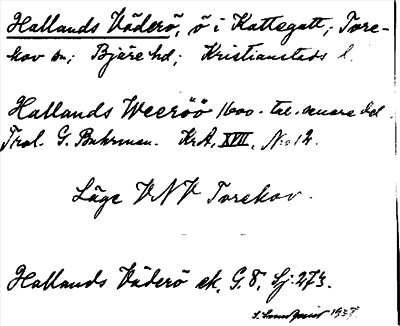 Hallands Väderö, ö i Kattegatt; Tore-
kov sn; Bjäre hd; Kristianstads l.
Hallands Weeröö 1600-tal. senare del.
Trol. G. Buhrman. KrA, XVII, N:o 12.
Läge VNV Torekov.
Hallands Väderö ek. G. 8, Sj: 273.
1937.